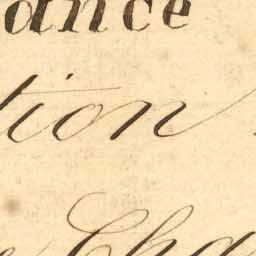 ance
tion
Cha